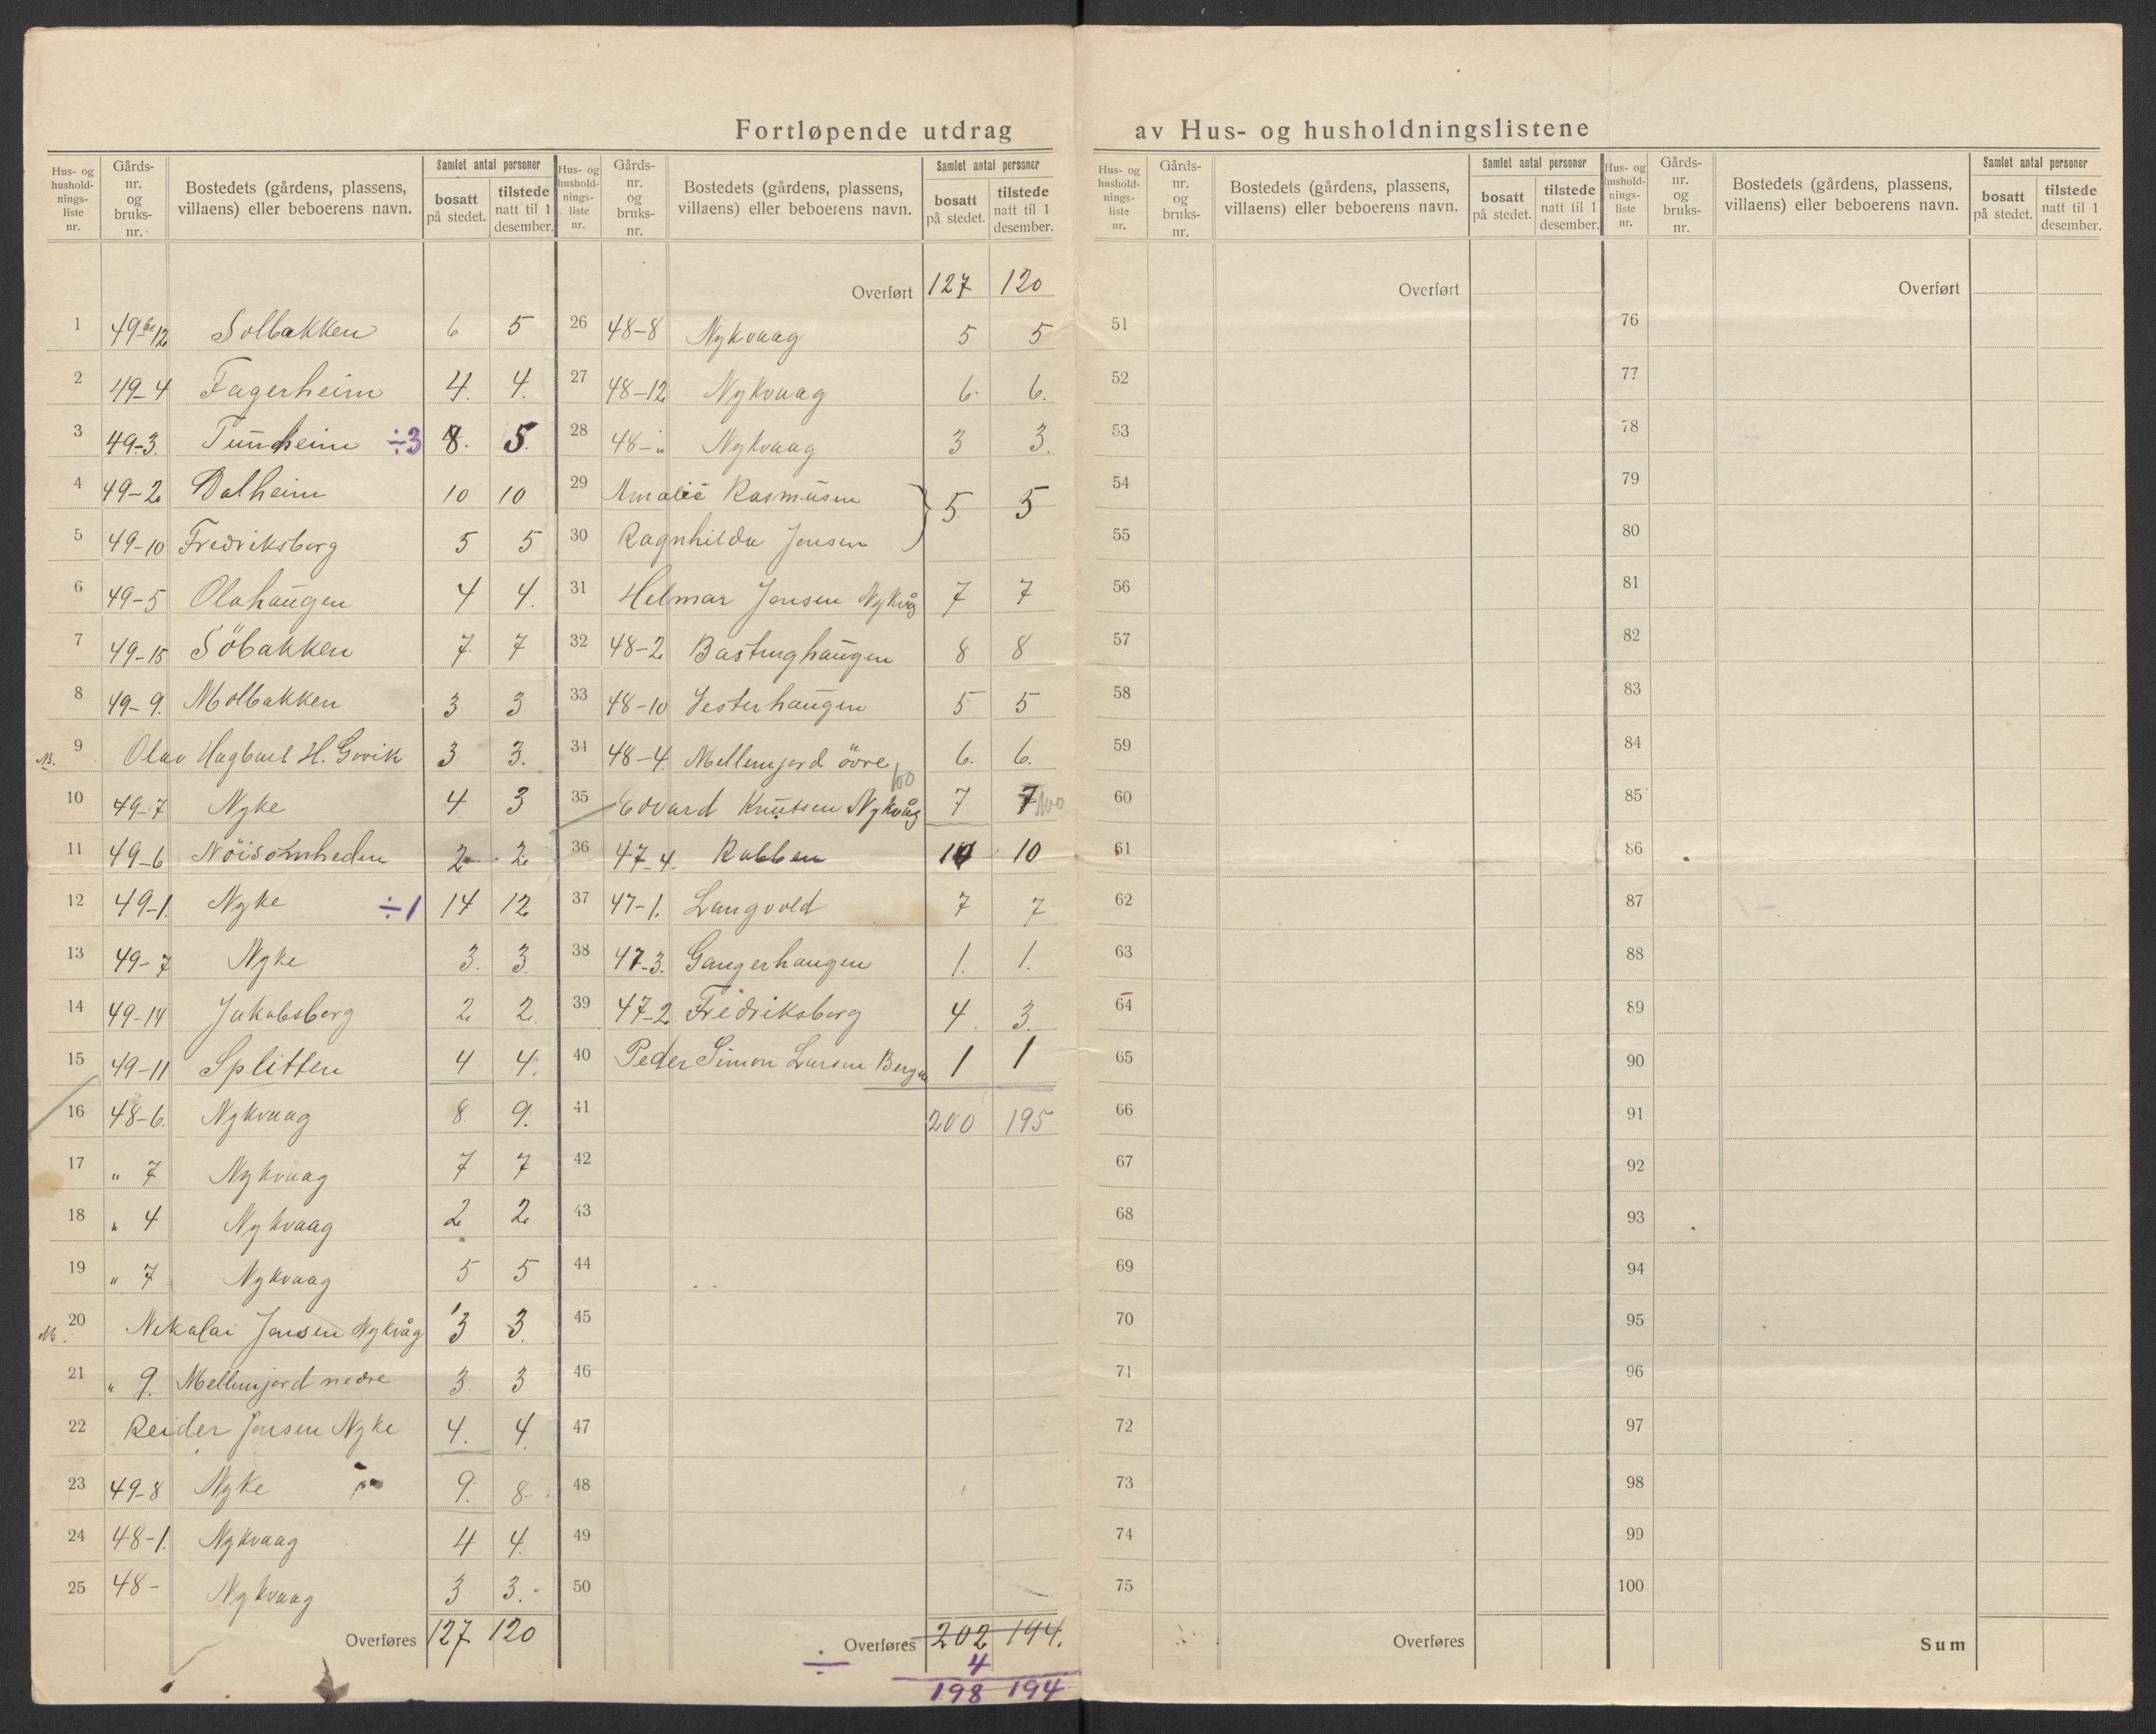 Fortløpende utdrag av Hus- og husholdningslistene
Hus- og husholdnings-liste nr. Gårds-nr. og bruks-nr. Bostedets (gårdens, plassens, villaens) eller beboerens navn. Samlet antal personer bosatt på stedet. tilstede natt til 1 desember.
1 49 12 Solbakken 6 5
2 49-4 Fagerheim 4. 4.
3 49-3. Tunheim ÷3 8. 5.
4 49-2 Dalheim 10 10
5 49-10 Fredriksborg 5 5
6 49-5 Olahaugen 4 4.
7 49-15 Söbakken 7. 7
8 49-9. Molbakken 3 3
NB. 9 Olav Hagbart H. Govik 3 3.
10 49-7 Nyke 4 3
11 49-6 Nöisomheden 2 2
12 49-1. Nyke ÷1 14 12
13 49-7 Nyke 3. 3.
14 49-14 Jakobsborg 2 2.
15 49-11 Splitten 4 4.
16 48-6. Nykvaag 8. 9.
17 " 7 Nykvaag 7 7
18 " 4 Nykvaag 2 2
19 " 7 Nykvaag 5 5
NB. 20 Nikolai Jensen Nykvåg 3 3.
21 " 9. Mellemjord nedre 3. 3
22 Reider Jensen Nyke 4. 4.
23 49-8 Nyke 9. 8.
24 48-1. Nykvaag 4 4.
25 48- Nykvaag 3 3.
Overføres 127 120
Hus- og husholdnings-liste nr. Gårds-nr. og bruks-nr. Bostedets (gårdens, plassens, villaens) eller beboerens navn. Samlet antal personer bosatt på stedet. tilstede natt til 1 desember.
Overført 127 120
26 48-8 Nykvaag 5 5
27 48-12 Nykvaag 6. 6.
28 48-" Nykvaag 3 3.
29 Amalie Rasmusen } 5 5
30 Ragnhilda Jensen
31 Helmar Jensen Nykvåg 7 7
32 48-2 Bastinghaugen 8 8
33 48-10 Vesterhaugen 5 5
34 48-4. Mellemjord övre 6. 6.
100
35 Edvard Knutsen Nykvåg 7 7 100
36 47-4. Rabben 10 10
37 47-1. Langvold 7 7
38 47-3. Gangerhaugen 1. 1.
39 47-2 Fredriksborg 4. 3.
40 Peder Simon Larsen Bergen 1 1
41 200 195
42
43
44
45
46
47
48
49
50
Overføres 202 194.
÷ 4
198 194
Hus- og husholdnings-liste nr. Gårds-nr. og bruks-nr. Bostedets (gårdens, plassens, villaens) eller beboerens navn. Samlet antal personer bosatt på stedet. tilstede natt til 1 desember.
Overført
51
52
53
54
55
56
57
58
59
60
61
62
63
64
65
66
67
68
69
70
71
72
73
74
75
Overføres
Hus- og husholdnings-liste nr. Gårds-nr. og bruks-nr. Bostedets (gårdens, plassens, villaens) eller beboerens navn. Samlet antal personer bosatt på stedet. tilstede natt til 1 desember.
Overført
76
77
78
79
80
81
82
83
84
85
86
87
88
89
90
91
92
93
94
95
96
97
98
99
100
Sum